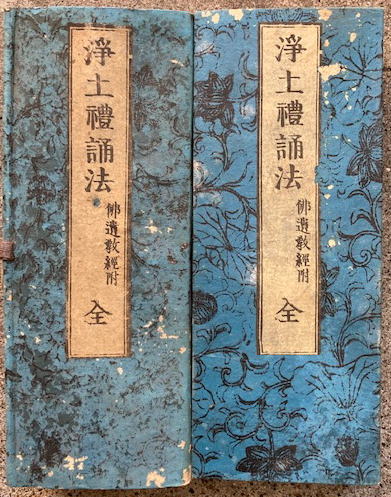 淨土禮誦法
佛遺教經附
全
淨土禮誦法
佛遺教經附
全